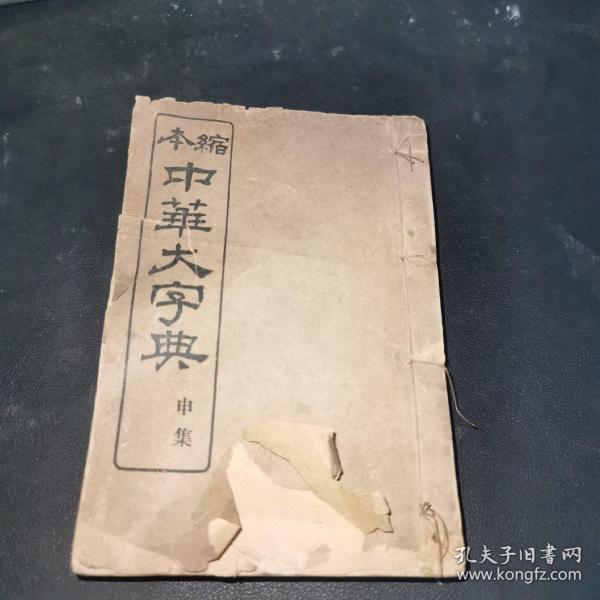 縮本
中華大字典
申集
孔夫子旧書网
www.kongfz.com